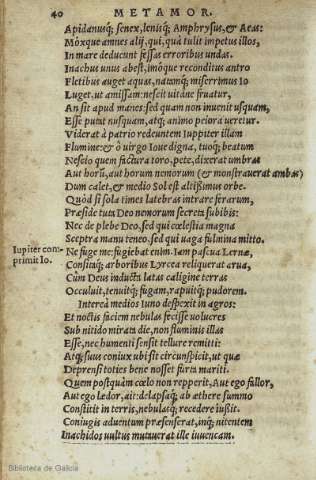 40 METAMOR.
Apidanusq; senex, lenisq; Amphrysus, & Aeas:
Moxque amnes alij, qui, quà tulit impetus illos,
In mare deducunt fessas erroribus undas.
Inachus unus abest, imoque reconditus antro
Fletibus auget aquas, natamq; miserrimus Io
Luget, ut amissam: nescit uitane fruatur,
An sit apud manes: sed quam non inuenit usquam,
Esse putat nusquam, atq; animo peiora ueretur.
Viderat à patrio redeuntem Iuppiter illam
Flumine: & ô uirgo Ioue digna, tuoq; beatum
Nescio quem factura toro, pete, dixerat umbras
Aut horũ, aut horum nemorum (& monstrauerat ambas)
Dum calet, & medio Sol est altißimus orbe.
Quòd si sola times latebras intrare ferarum,
Præside tuta Deo nemorum secreta subibis:
Nec de plebe Deo, sed qui cœlestia magna
Sceptra manu teneo, sed qui uaga fulmina mitto.
Iupiter com
primit Io.
Ne fuge me: fugiebat enim. Iam pascua Lernæ,
Consitaq; arboribus Lyrcea reliquerat arua,
Cùm Deus inducta latas caligine terras
Occuluit, tenuitq; fugam, rapuitq; pudorem.
Intereà medios Iuno despexit in agros:
Et noctis faciem nebulas fecisse uolucres
Sub nitido mirata die, non fluminis illas
Esse, nec humenti sensit tellure remitti:
Atq; suus coniux ubi sit circunspicit, ut quæ
Deprensi toties bene nosset furta mariti.
Quem postquàm cœlo non repperit, Aut ego fallor,
Aut ego lædor, ait: delapsaq; ab æthere summo
Constitit in terris, nebulasq; recedere iußit.
Coniugis aduentum præsenserat, inq; nitentem
Inachidos uultus mutauerat ille iuuencam.
Biblioteca de Galicia